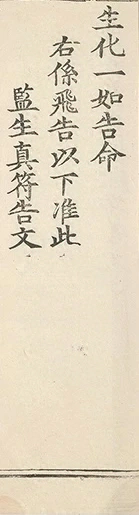 生化一如告命
右係飛告以下准此
監生真符告文